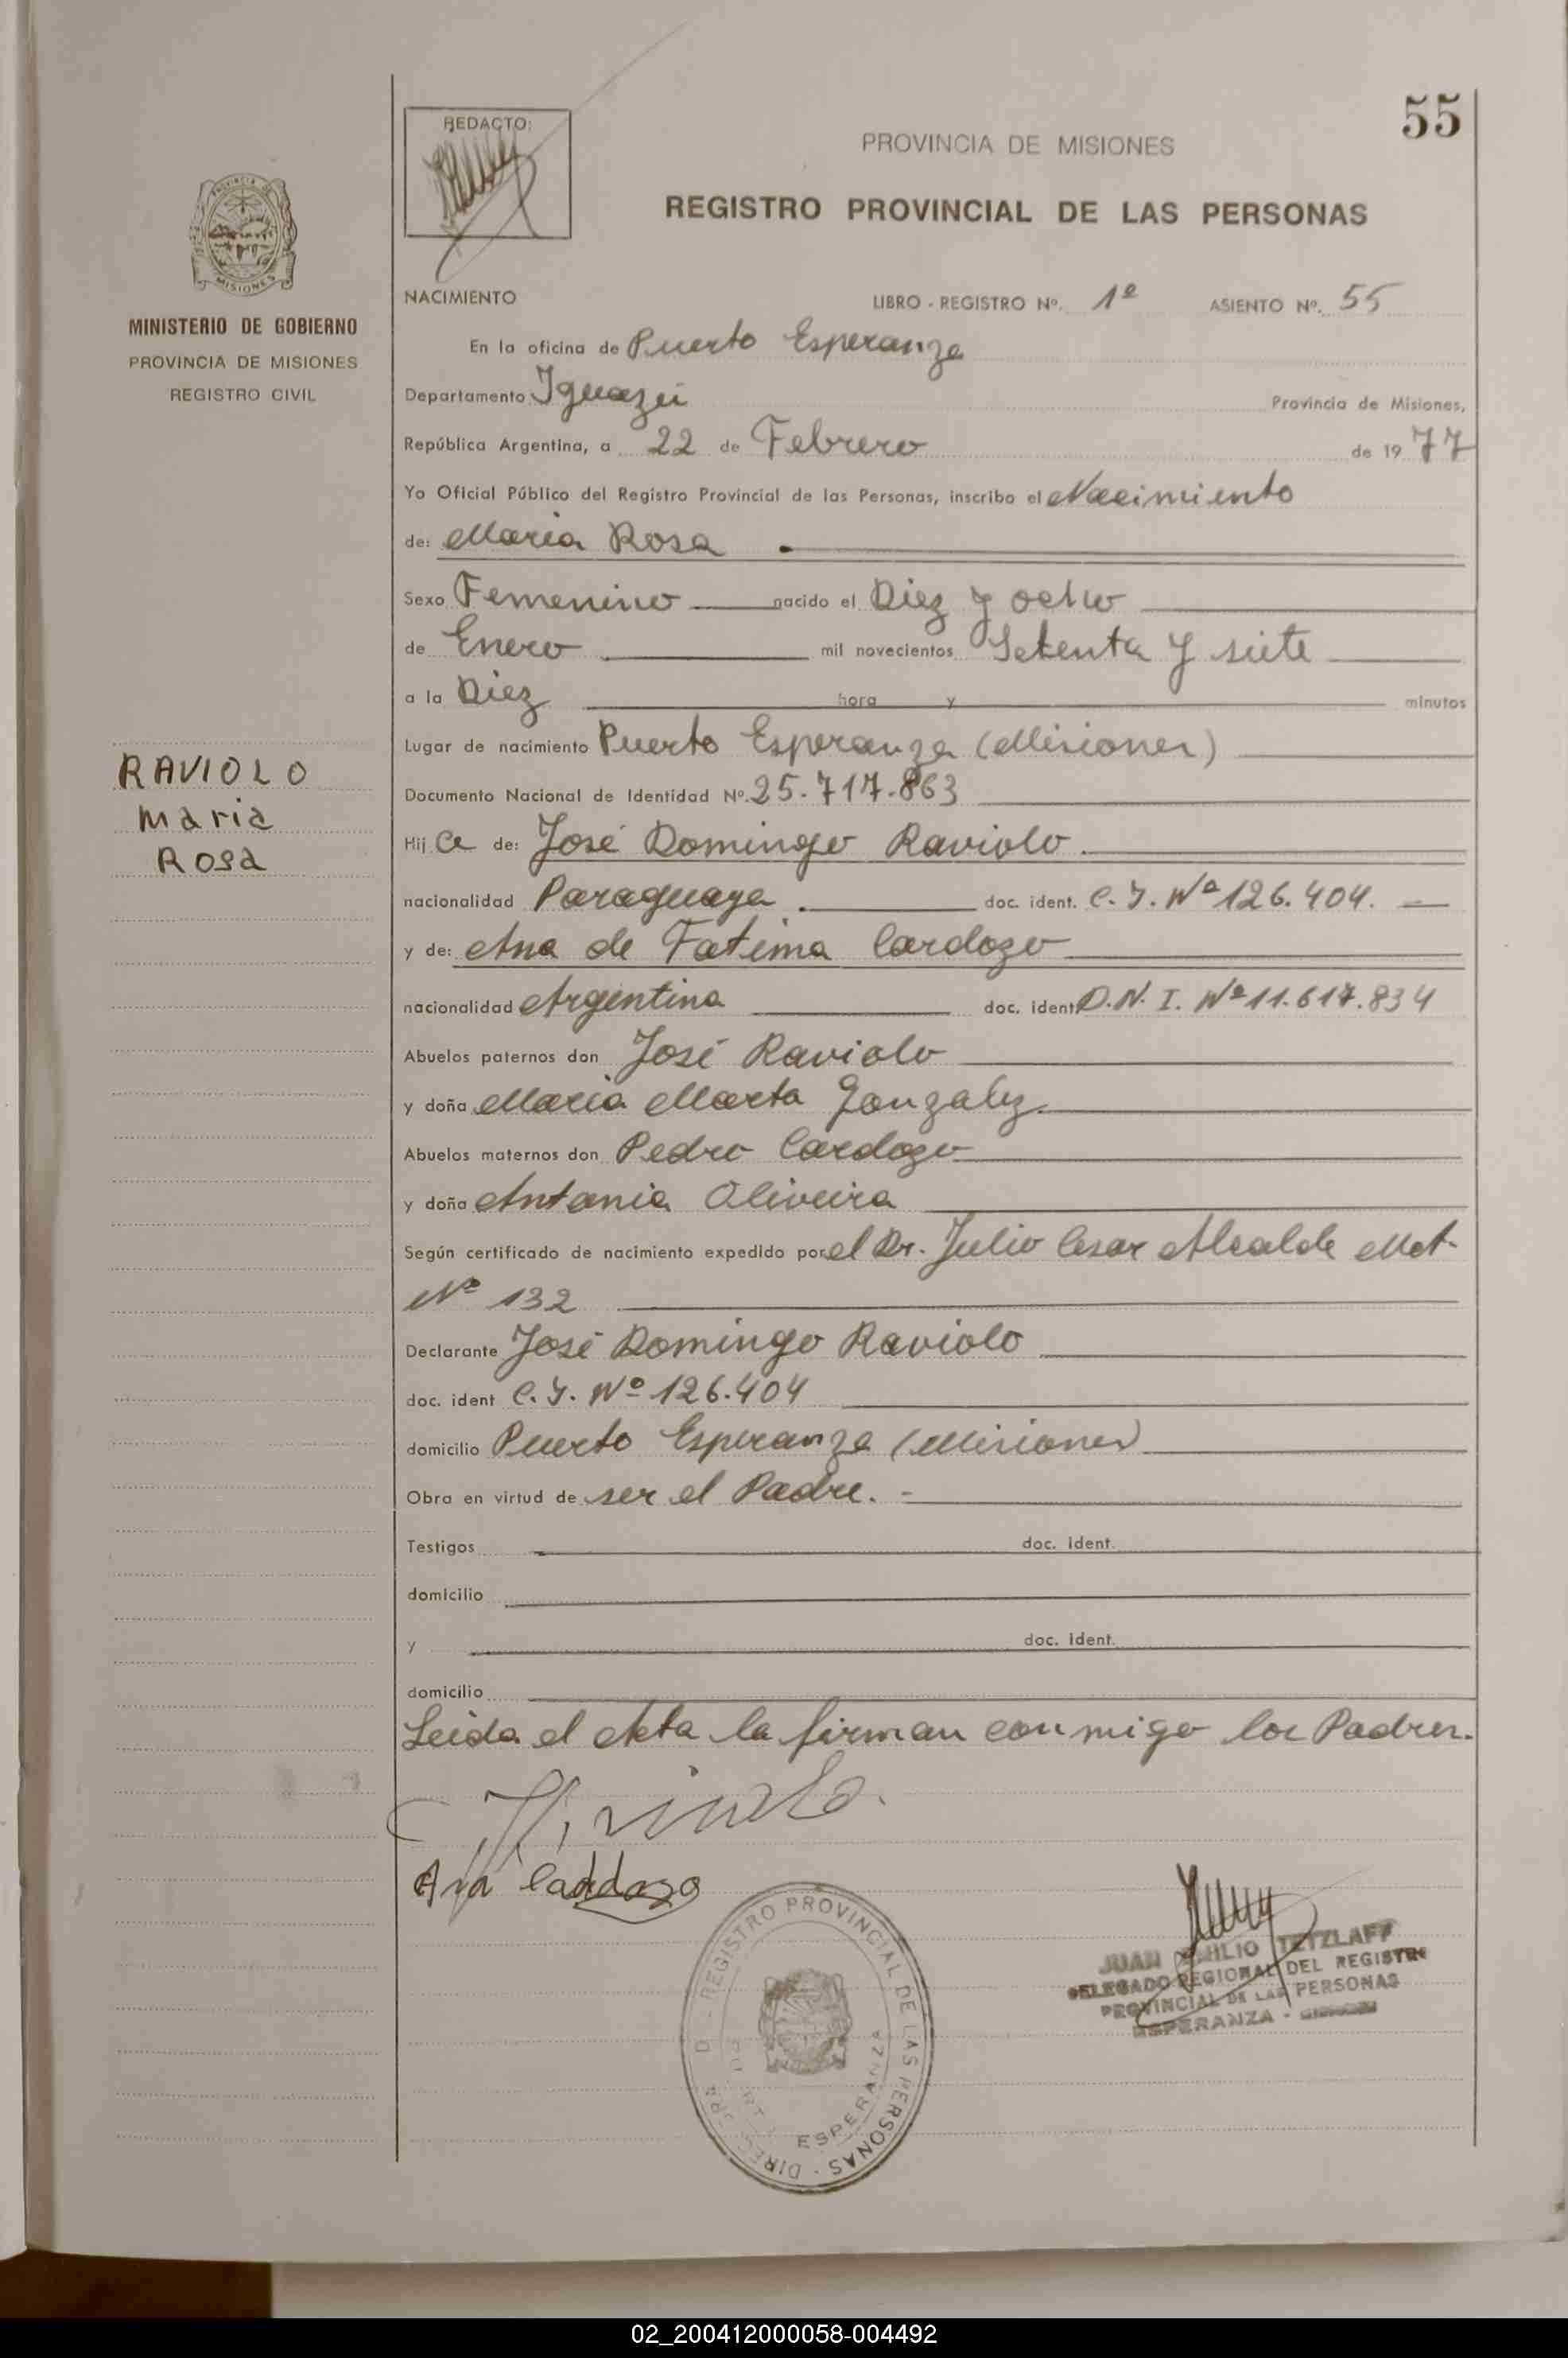 55
REDACTO:
PROVINCIA DE MISIONES
REGISTRO PROVINCIAL DE LAS PERSONAS
PROVINCIA DE
MISIONES
MINISTERIO DE GOBIERNO
PROVINCIA DE MISIONES
REGISTRO CIVIL
RAVIOLO
Maria
Rosa
NACIMIENTO LIBRO - REGISTRO Nº. 1º ASIENTO Nº. 55
En la oficina de Puerto Esperanza
Departamento Iguazú Provincia de Misiones,
República Argentina, a 22 de Febrero de 1977
Yo Oficial Público del Registro Provincial de las Personas, inscribo el Nacimiento
de: Maria Rosa .
Sexo Femenino nacido el Diez y ocho
de Enero mil novecientos Setenta y siete
a la Diez hora y minutos
Lugar de nacimiento Puerto Esperanza (Misiones)
Documento Nacional de Identidad Nº. 25.717.863
Hij a de: José Domingo Raviolo.
nacionalidad Paraguaya . doc. ident. C.I. Nº 126.404. —
y de: Ana de Fatima Cardozo
nacionalidad Argentina doc. ident. D.N.I. Nº 11.617.834
Abuelos paternos don José Raviolo
y doña Maria Marta Gonzalez.
Abuelos maternos don Pedro Cardozo
y doña Antonia Oliveira
Según certificado de nacimiento expedido por el Dr. Julio Cesar Alcalde Mat.
Nº 132
Declarante José Domingo Raviolo
doc. ident C.I. Nº 126.404
domicilio Puerto Esperanza (Misiones)
Obra en virtud de ser el Padre. -
Testigos doc. ident.
domicilio
y doc. ident.
domicilio
Leida el Acta la firman conmigo los Padres.
Ana Cardozo
REGISTRO PROVINCIAL DE LAS PERSONAS
ESPERANZA
JUAN EMILIO TETZLAFF
DELEGADO REGIONAL DEL REGISTRO
PROVINCIAL DE LAS PERSONAS
ESPERANZA -
02_200412000058-004492